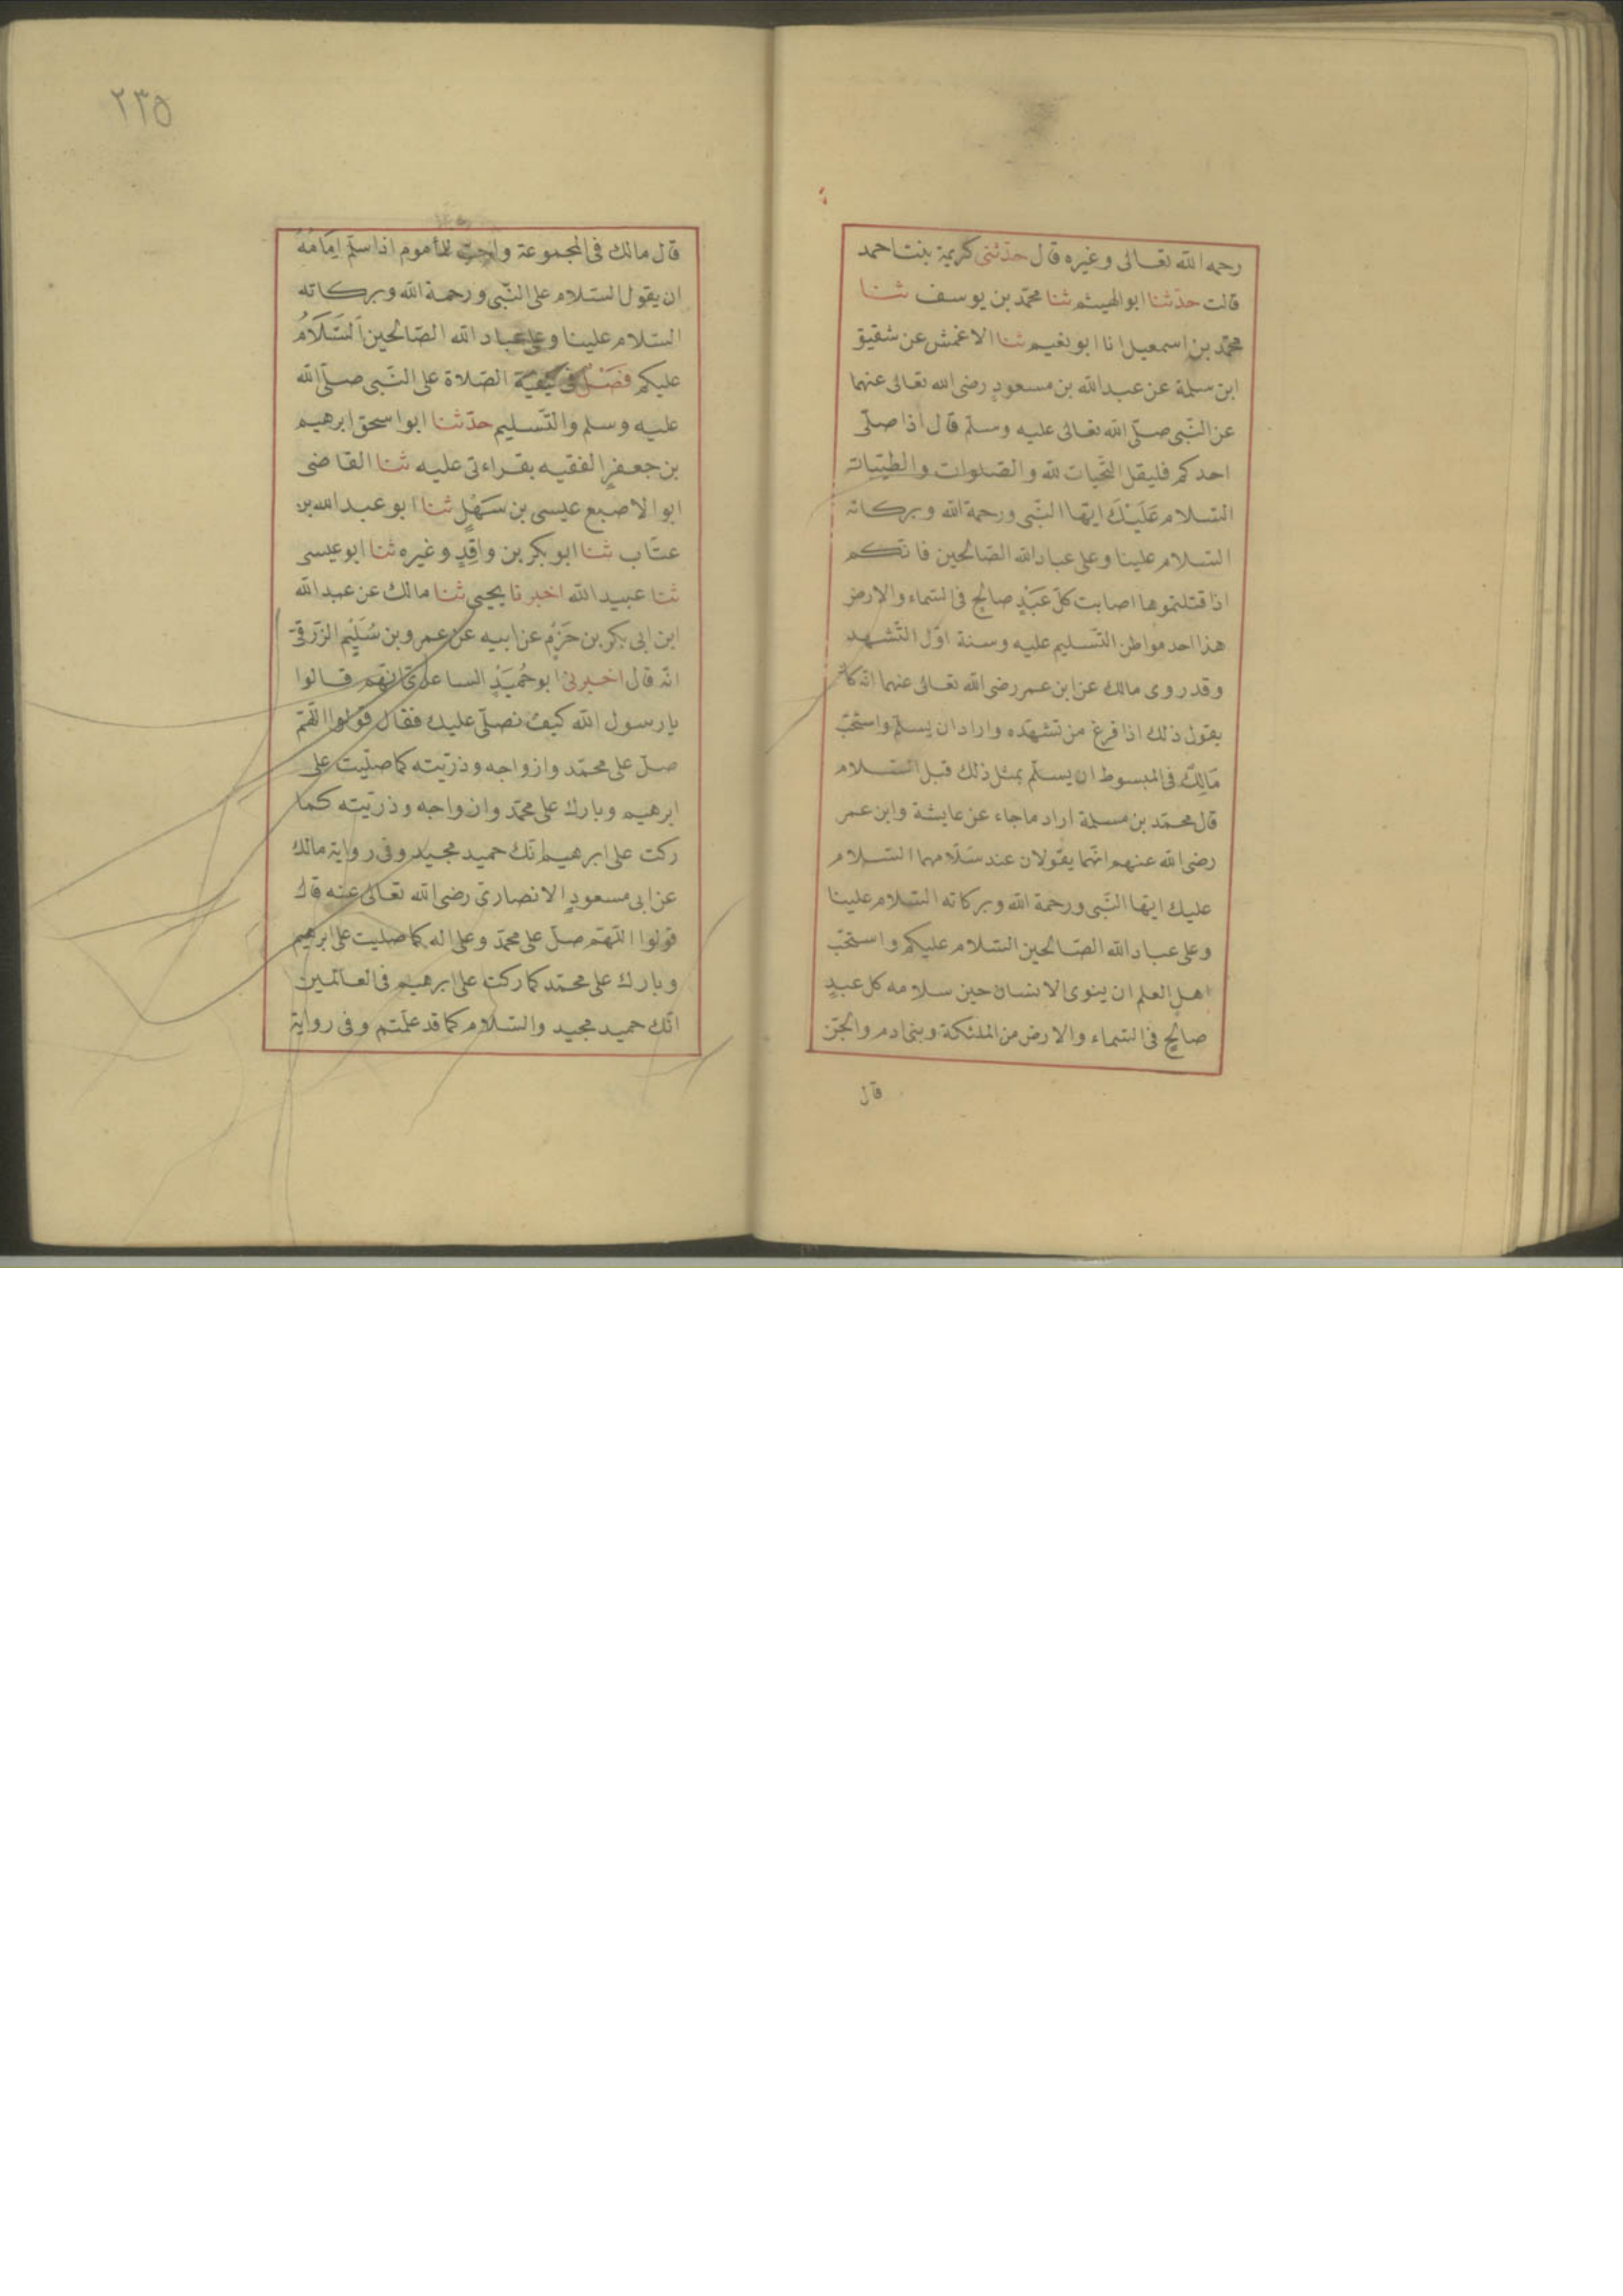 رحمه الله تعالى وغيره قال حدّثنى كريمة بنت احمد
قالت حدّثنا ابو الهيثم ثنا محمّد بن يوسف ثنا
محمّد بن اسمعيل انا ابو نعيم ثنا الاعمش عن شقيق
ابن سلمة عن عبد الله بن مسعودٍ رضى الله تعالى عنهما
عن النّبى صلّى الله تعالى عليه وسلّم قال اذا صلّى
احدكم فليقل التّحيات لله والصّلوات والطيّبات
السّلام عَلَيْكَ ايّها النّبى ورحمة الله وبركاته
السّلام علينا وعلى عباد الله الصّالحين فانّكم
اذا قتلتموها اصابت كلّ عَبْدٍ صالح فى السّماء والارض
هذا احد مواطن التّسليم عليه وسنة اوّل التّشهد
وقد روى مالك عن ابن عمر رضى الله تعالى عنهما انّه كان
يقول ذلك اذا فرغ من تشهّده واراد ان يسلّم واستحبّ
مَالِكٌ فى المبسوط ان يسلّم بمثل ذلك قبل السّلام
قال محمّد بن مسلمة اراد ما جاء عن عايشة وابن عمر
رضى الله عنهم انّهما يقولان عند سَلَامهما السّلام
عليك ايّها النّبى ورحمة الله وبركاته السّلام علينا
وعلى عباد الله الصّالحين السّلام عليكم واستحبّ
اهل العلم ان ينوى الانسان حين سلامه كل عبدٍ
صالحٍ فى السّماء والارض من الملئكة وبنى ادم والجنّ
قال
٢٣٥
قال مالك فى المجموعة واحبّ للمأموم اذا سلّم اِمَامُهُ
ان يقول السّلام على النّبى ورحمة الله وبركاته
السّلام علينا وعلى عباد الله الصّالحين اَلسَّلَامُ
عليكم فَصْلٌ فى كيفيّة الصّلاة على النّبى صلّى الله
عليه وسلم والتّسليم حدّثنا ابو اسحق ابرهيم
بن جعفرٍ الفقيه بقراءتى عليه ثنا القاضى
ابو الاصبع عيسى بن سَهْلٍ ثنا ابو عبد الله بن
عتّاب ثنا ابو بكر بن واقِدٍ وغيره ثنا ابو عيسى
ثنا عبيد الله اخبرنا يحيى ثنا مالك عن عبد الله
ابن ابى بكر بن حَزْمٍ عن ابيه عن عمرو بن سُلَيْم الزّرقىّ
انّه قال اخبرنى ابو حُمَيْدٍ الساعدىّ انّهم قالوا
يا رسول الله كيف نصلّى عليك فقال قولوا اللّهمّ
صلّ على محمّد وازواجه وذرّيته كما صلّيت على
ابرهيم وبارك على محمّد وازواجه وذرّيته كما
ركت على ابرهيم انّك حميد مجيد وفى رواية مالك
عن ابى مسعودٍ الانصارىّ رضى الله تعالى عنه قال
قولوا اللّهمّ صلّ على محمّد وعلى اله كما صليت على ابرهيم
وبارك على محمّد كما ركت على ابرهيم فى العالمين
انّك حميد مجيد والسّلام كما قد علّمتم وفى رواية